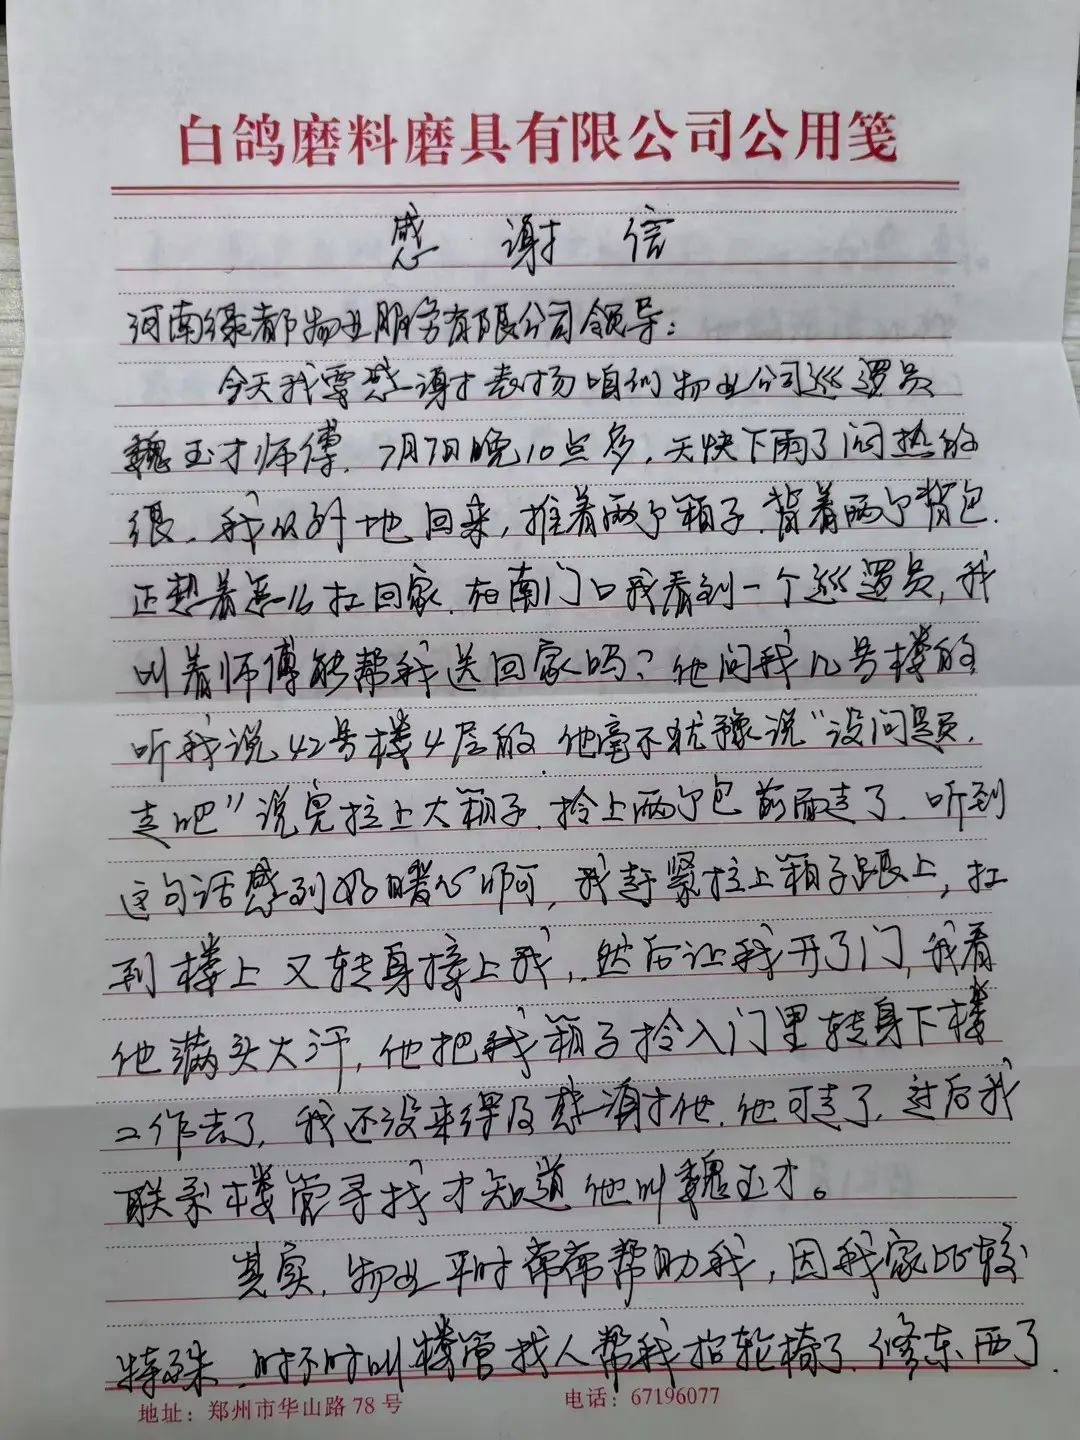 白鸽磨料磨具有限公司公用笺
感谢信
河南绿都物业服务有限公司领导:
今天我要感谢才表扬咱们物业公司巡逻员
魏玉才师傅.7月7日晚10点多,天快下雨了闷热的
很.我从外地回来,推着两个箱子.背着两个背包.
正想着怎么扛回家.在南门口我看到一个巡逻员,我
叫着师傅能帮我送回家吗?他问我几号楼的
听我说42号楼4层的.他毫不犹豫说"没问题.
走吧"说完拉上大箱子.拎上两个包前面走了.听到
这句话感到好暖心啊,我赶紧拉上箱子跟上,扛
到楼上又转身接上我,然后让我开了门,我看
他满头大汗,他把我箱子拎入门里转身下楼
工作去了,我还没来得及感谢他.他可走了.过后我
联系楼管寻找才知道他叫魏玉才。
其实.物业平时常常帮助我,因我家比较
特殊.时不时叫楼管找人帮我抬轮椅了.修东西了.
地址:郑州市华山路78号
电话:67196077